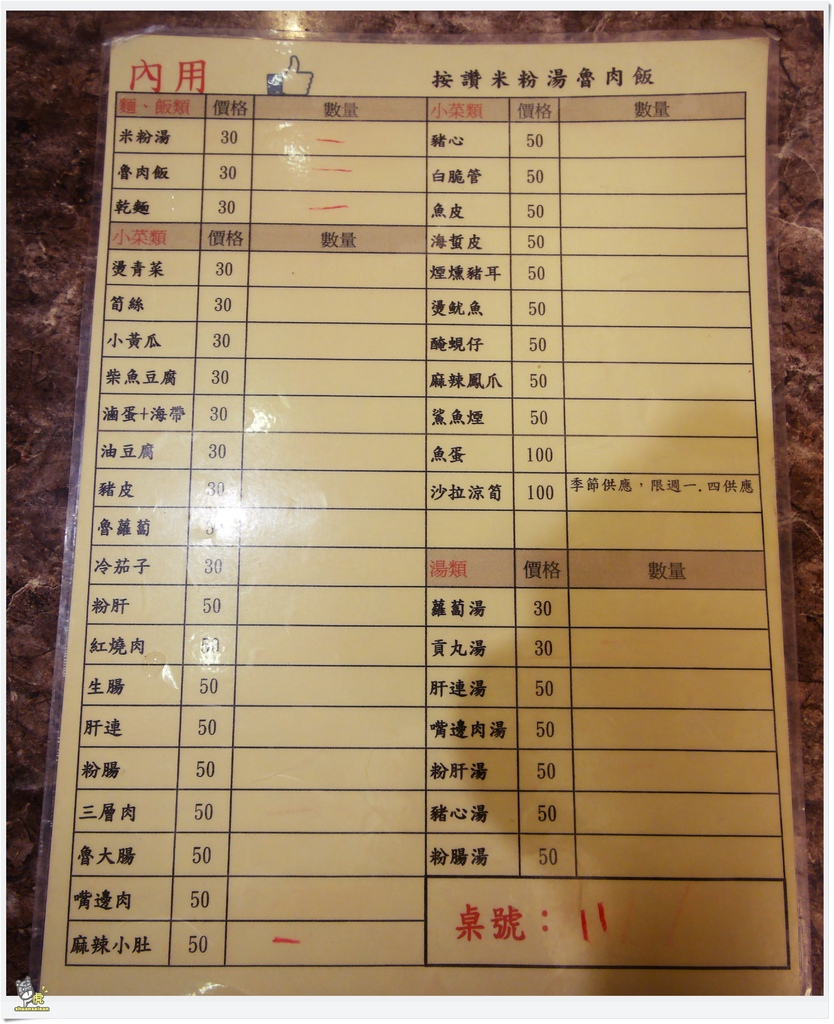 內用
按讚米粉湯魯肉飯
麵、飯類 價格 數量
米粉湯 30 一
魯肉飯 30 一
乾麵 30 一
小菜類 價格 數量
燙青菜 30
筍絲 30
小黃瓜 30
柴魚豆腐 30
滷蛋+海帶 30
油豆腐 30
豬皮 30
魯蘿蔔
冷茄子 30
粉肝 50
紅燒肉 50
生腸 50
肝連 50
粉腸 50
三層肉 50
魯大腸 50
嘴邊肉 50
麻辣小肚 50 一
小菜類 價格 數量
豬心 50
白脆管 50
魚皮 50
海蜇皮 50
煙燻豬耳 50
燙魷魚 50
醃蜆仔 50
麻辣鳳爪 50
鯊魚煙 50
魚蛋 100
沙拉涼筍 100 季節供應，限週一.四供應
湯類 價格 數量
蘿蔔湯 30
貢丸湯 30
肝連湯 50
嘴邊肉湯 50
粉肝湯 50
豬心湯 50
粉腸湯 50
桌號：11